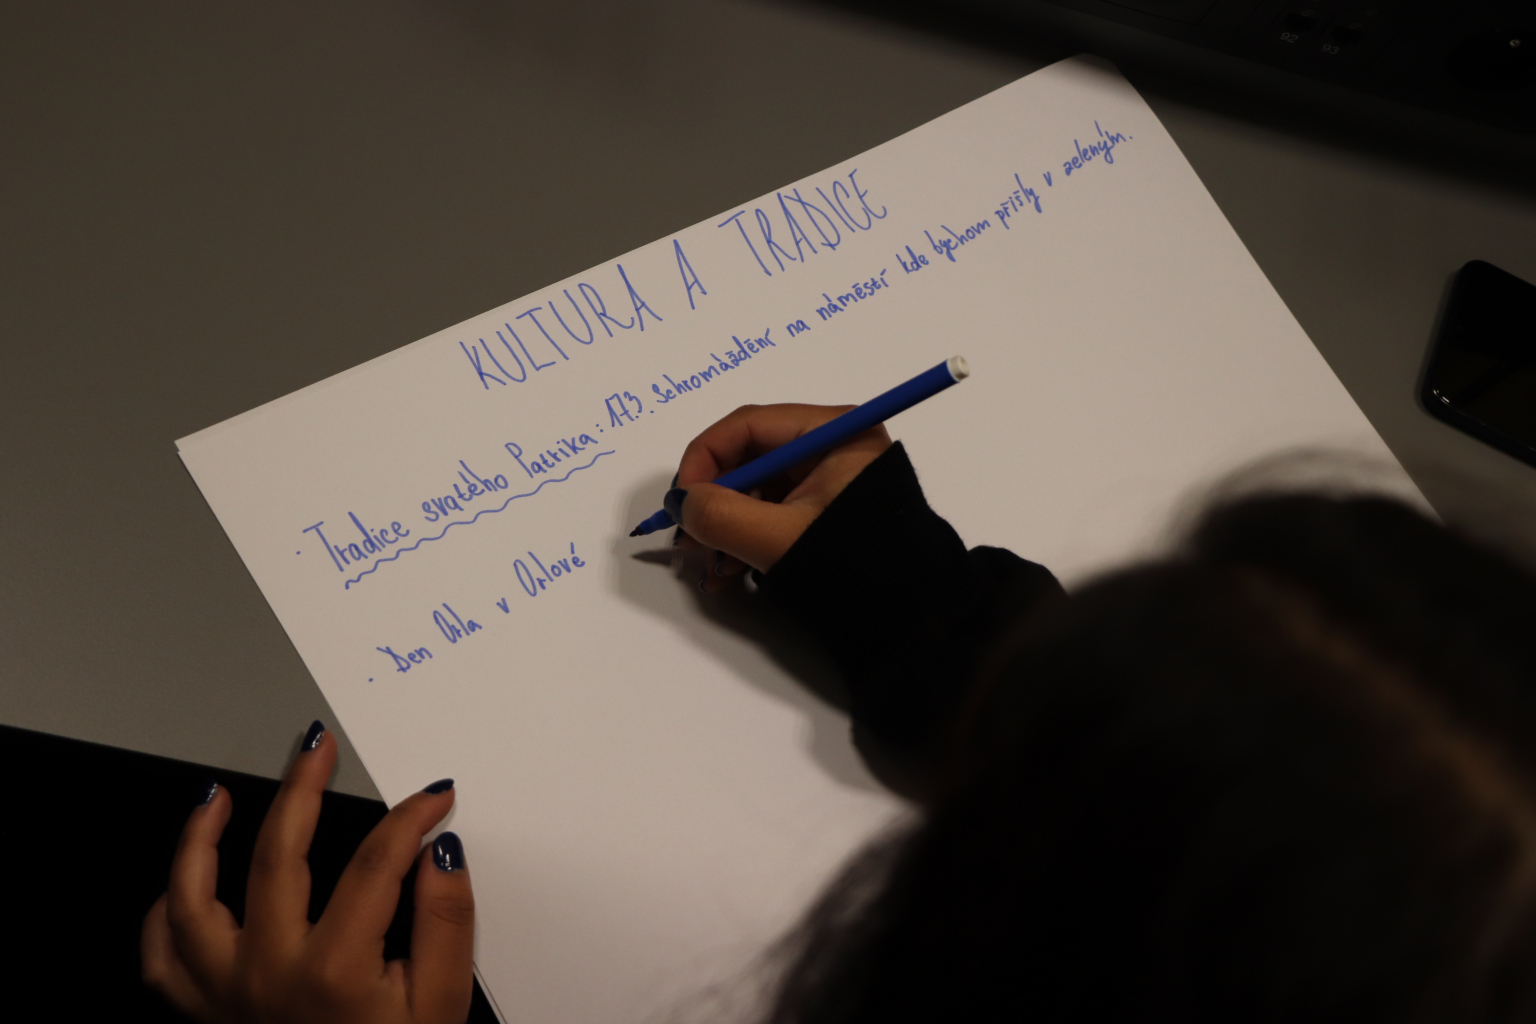 92 93
KULTURA A TRADICE
· Tradice svatého Patrika : 17.3. Schromáždění na náměstí kde bychom přišly v zeleným.
· Den Orla v Orlové